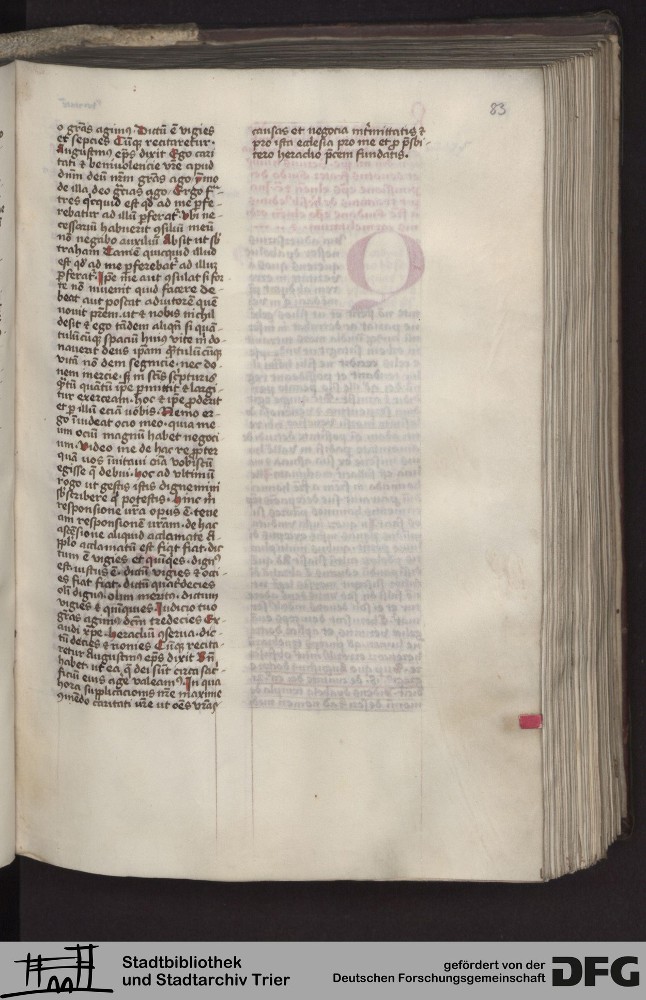 83
o grãs agimꝰ. Dictũ ẽ vigies
et sepcies Cũqꝫ recitaretur.
Augustinꝰ ep̃s dixit Ego cari
tati ⁊ benivolencie vr̃e apud
dñm deũ nr̃m grãs ago ymo
de illa deo grãcias ago Ergo fr̃⸗
tres qͥcquid est qđ ad me ꝑfe⸗
rebatur ad illũ ꝑferatᷣ. Vbi ne⸗
cessariũ habuerit ꝯsiliũ meũ
nõ negabo auxiliũ Absit ut sb̾
traham Tamẽ quicquid illud
est qđ ad me ꝑferebatᷣ ad illuꝫ
ꝑferatᷣ. Ip̃e me aut ꝯsulat si for
te nõ invenit quid facere de⸗
beat aut poscat adiutorẽ quẽ
novit pr̃em. ut ⁊ nobis nichil
desit ⁊ ego tãdem aliqñ si quã⸗
tulũcũqꝫ spaciũ huiꝰ vite m̃ do⸗
naverit deus ip̃am qͣtulũcũqꝫ
vitã nõ dem segnicie. nec do⸗
nem mercie. sꝫ in sc̃is sc̾pturis
qͣtũ quãtũ ip̃e ꝑmittit ⁊ largi⸗
tur exerceam. hoc ⁊ ip̃e ꝓderit
et ꝑ illũ eciã vobis. Nemo er⸗
go ĩvideat ocio meo. quia me
um ociũ magnũ habet negoci
um. Video me de hac re ꝓpter
quã vos ĩvitavi oĩa vobiscũ
egisse q̃ debui. hoc ad ultimũ
rogo ut gestis istis dignemini
sb̾scribere qͥ potestis. hinc m̃
responsione vr̃a opus ẽ. tene
am responsionẽ vr̃am. de hac
ascẽsione aliquid acclamate A
pp̃lo acclamatũ est fiat fiat. dic
tum ẽ vigies et quĩqes. dignꝰ
est. iustus ẽ. dictũ vigies ⁊ occi⸗
es fiat fiat. dictũ quatᷣdecies
olĩ dignꝰ. olim merito. dictum
vigies ⁊ quĩquies Iudicio tuo
grãs agimꝰ dc̃m tredecies Ex⸗
audi xp̃e. heracliũ ꝯserva. dic⸗
tũ decies ⁊ nonies Cũqꝫ recita⸗
retur Augustinꝰ ep̃s dixit Bñ
habet. ut ea q̃ dei sũt circa sac̾⸗
ficiũ eius age valeamꝰ. In qua
hora supplicacionis nr̃e maxime
ꝯmẽdo caritati vr̃e ut oẽs vr̃as
causas et negocia intᷣmittatis ⁊
pro ista ecclesia pro me et ꝓ pr̃sbi⸗
tero heraclio pͤcem fundatis.
Stadtbibliothek
und Stadtarchiv Trier
gefördert von der
Deutschen Forschungsgemeinschaft
DFG